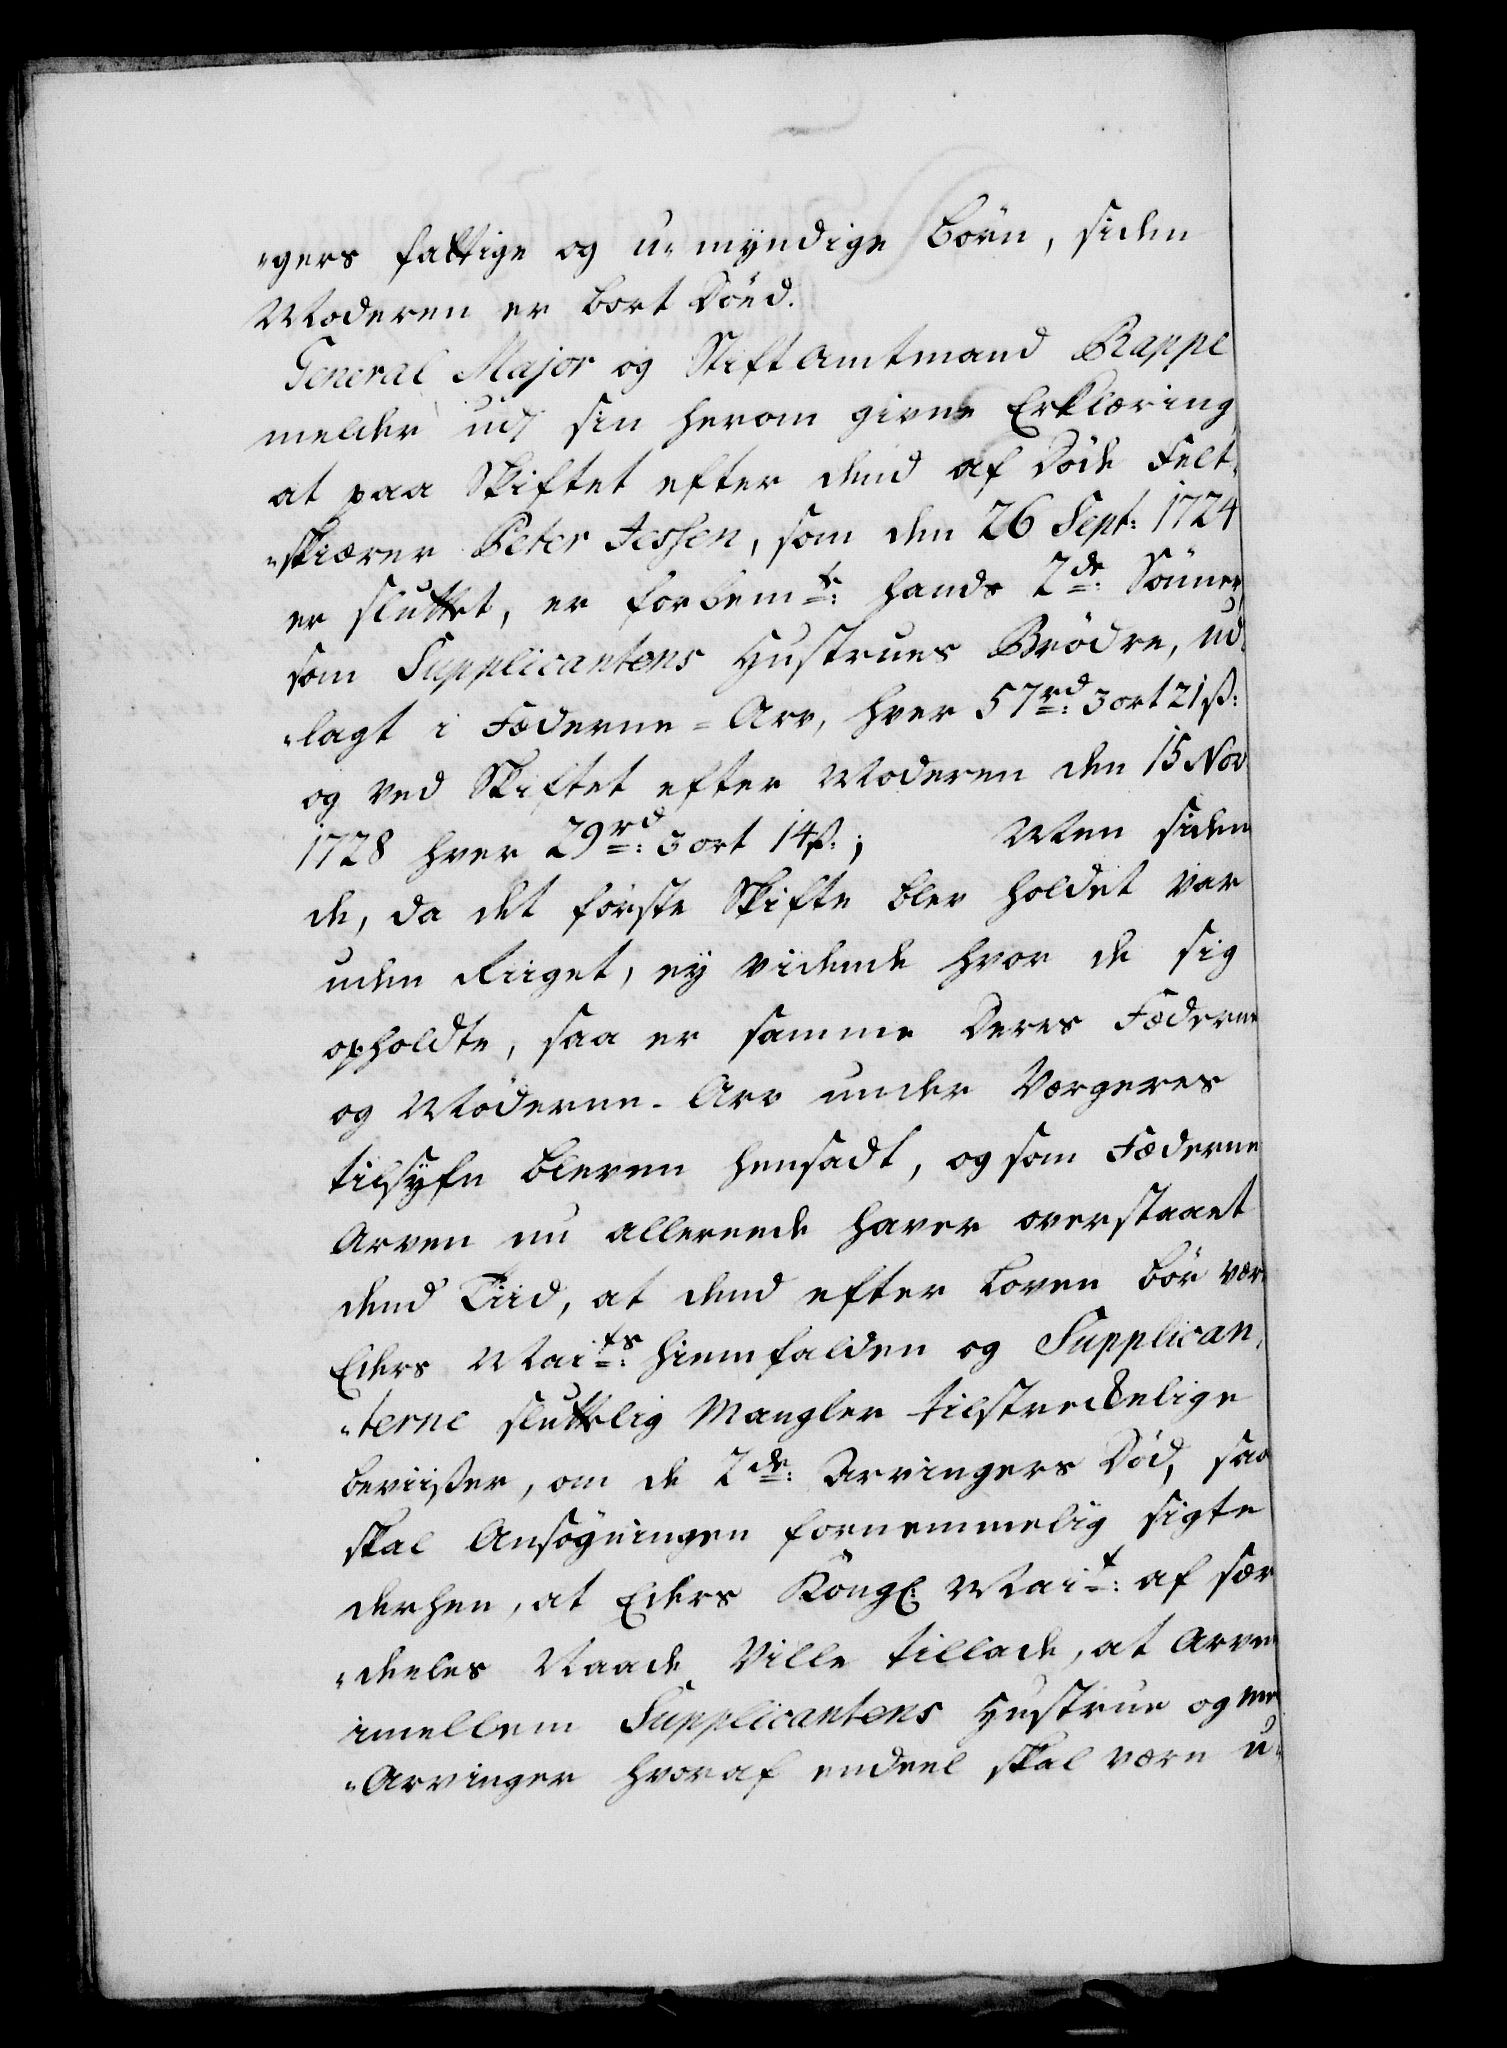 "gers fattige og u-myndige Börn, siden
Moderen er bort Döed.
General Major og Stiftamtmand Rappe
melder udj sin herom givne Erklæring,
at paa Skiftet efter dend af Döde Felt-
"skiærer Peter Jessen, som den 26 Sept: 1724
er sluttet, er forbemte: hands 2de: Sönner
som Supplicantens Hustrues Brödre, ud-
"lagt i Fæderne-Arv, hver 57rd: 3 ort 21 ß:
og ved Skiftet efter Moderen den 15 Nov
1728 hver 29rd: 3 ort 14 ß:; Men siden
de, da det förste Skifte blev holdet var
uden Riiget, ey vidende hvor de sig
opholdte, saa er samme Deres Fæderne
og Möderne-Arv under Værgeres
tilsyfn bleven hensadt, og som Fæderne
Arven nu allereede haver overstaaet
dend Tiid, at dend efter Loven bör vær
Eders Maits: hiemfalden og Supplican-
"terne sluttelig Mangler tilstreckelige
beviißer, om de 2de: Arvingers Död, saa
skal Ansögningen fornemmelig sigte
derhen, at Eders Kongl: Mait: af sær
"deeles Naade Ville tillade, at Arven
imellem Supplicantens Hustrue og Med
"Arvinger hvoraf endeel skal være u-